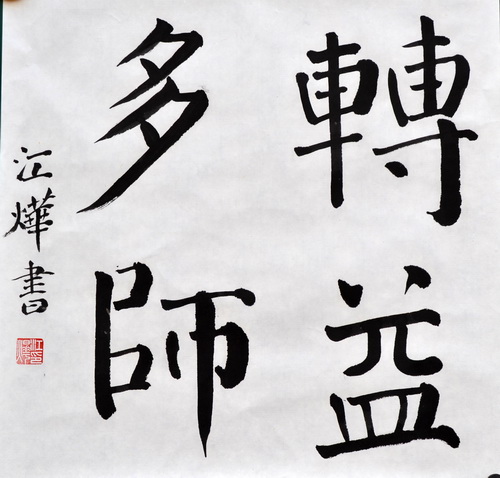 轉益
多師
江燁書